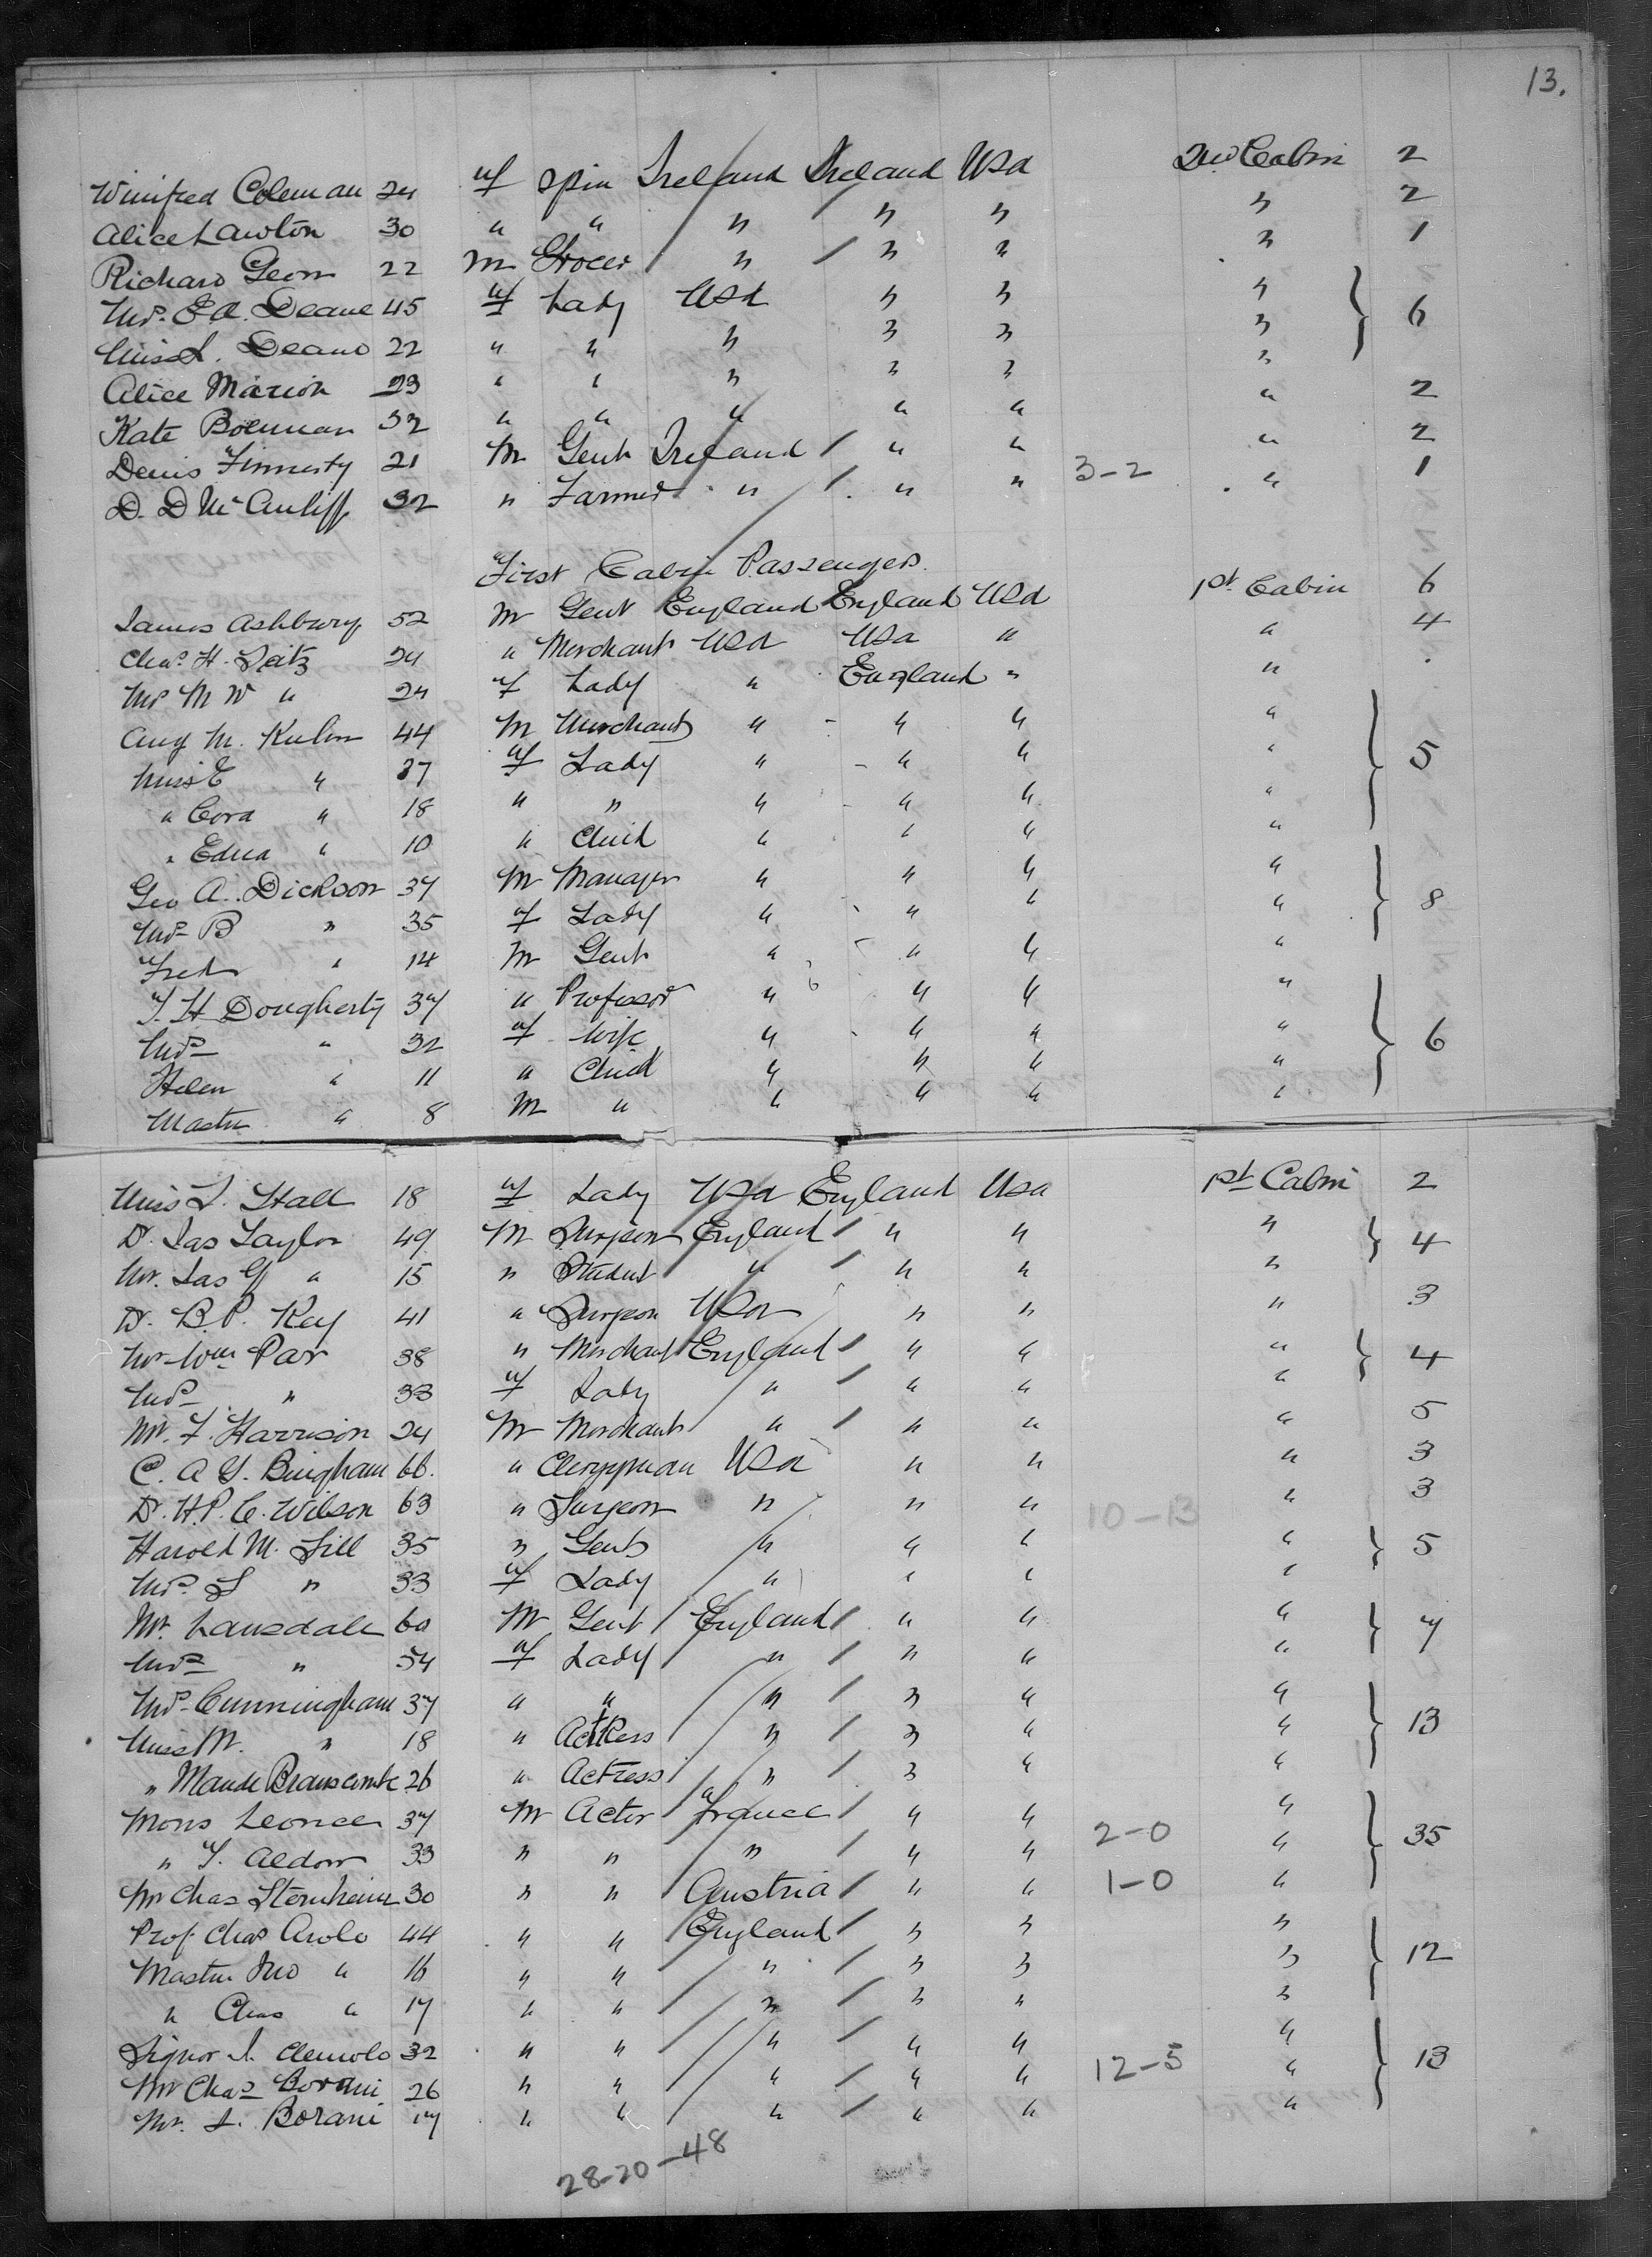 13.
Winifred Coleman 24 f Spin Ireland Ireland Usa 2nd Cabin 2
Alice Lawton 30 " " " " " " 2
Richard Geon 22 M Grocer " " " " 1
Mrs. E A. Deane 45 f Lady Usa " " " 6
Miss L. Deane 22 " " " " " "
Alice Marion 23 " " " " " "
Kate Brennan 32 " " " " " " 2
Denis Finnerty 21 M Gent Ireland " " " 2
D. D McAuliff 32 " Farmer " " " 3-2 " 1
First Cabin Passengers.
James Ashbury 52 M Gent England England Usa 1st Cabin 6
Chas. H. 24 " Merchant Usa Usa " " 4
Mrs M W " 24 f Lady " England " "
Aug M. Kuhn 44 M Merchant " " " " 5
Miss E " 37 f Lady " " " "
" Cora " 18 " " " " " "
" Edna " 10 " Child " " " "
Geo A. Dickson 37 M Manager " " " " 8
Mrs B " 35 f Lady " " " "
Fred " 14 M Gent " " " "
T. H Dougherty 37 " Professor " " " " 6
Mrs " 32 f Wife " " " "
Helen " 11 " Child " " " "
Master " 8 M " " " " "
Miss L. Stall 18 f Lady Usa England Usa 1st Cabin 2
Dr. Jas Taylor 49 M Surgeon England " " " 4
Mr. Jas G " 15 " Student " " " "
Dr. B. P. Key 41 " Surgeon Usa " " " 3
Mr Wm Par 38 " Merchant England " " " 4
Mrs " 33 f Lady " " " "
Mr. F. Harrison 24 M Merchant " " " " 5
C. A G. Bingham 66. " Clergyman Usa " " " 3
Dr. H. P. C. Wilson 63 " Surgeon " " " 10-13 " 3
Harold M. Sill 35 " Gent " " " " 5
Mrs. S " 33 f Lady " " " "
Mr. Lansdale 60 M Gent England " " " 7
Mrs " 54 f Lady " " " "
Mrs Cunningham 37 " " " " " " 13
Miss M. " 18 " Actress " " " "
" Maude Branscombe 26 " Actress " " " "
Mons Leonce 37 M Actor France " " " 35
" T. Aldow 33 " " " " " 2-0 "
Mr Chas Sternheim 30 " " Austria " " 1-0 "
Prof. Chas Arolo 44 " " England " " " 12
Master Jno " 16 " " " " " "
" Chas " 17 " " " " " "
Signor J. 32 " " " " " " 13
Mr Chas Borani 26 " " " " " 12-5 "
Mr. J. Borani 17 " " " " " "
28-20-48